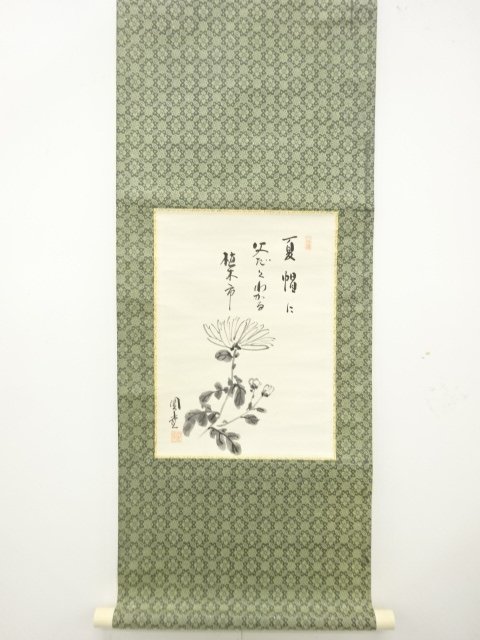 夏帽に
父だとわかる
植木市